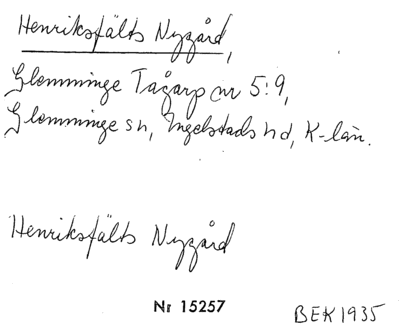 Henriksfälts Nygård,
Glemminge Tågarp nr 5:9,
Glemminge sn, Ingelstads hd, K-län.
Henriksfälts Nygård
Nr 15257
BEK 1935